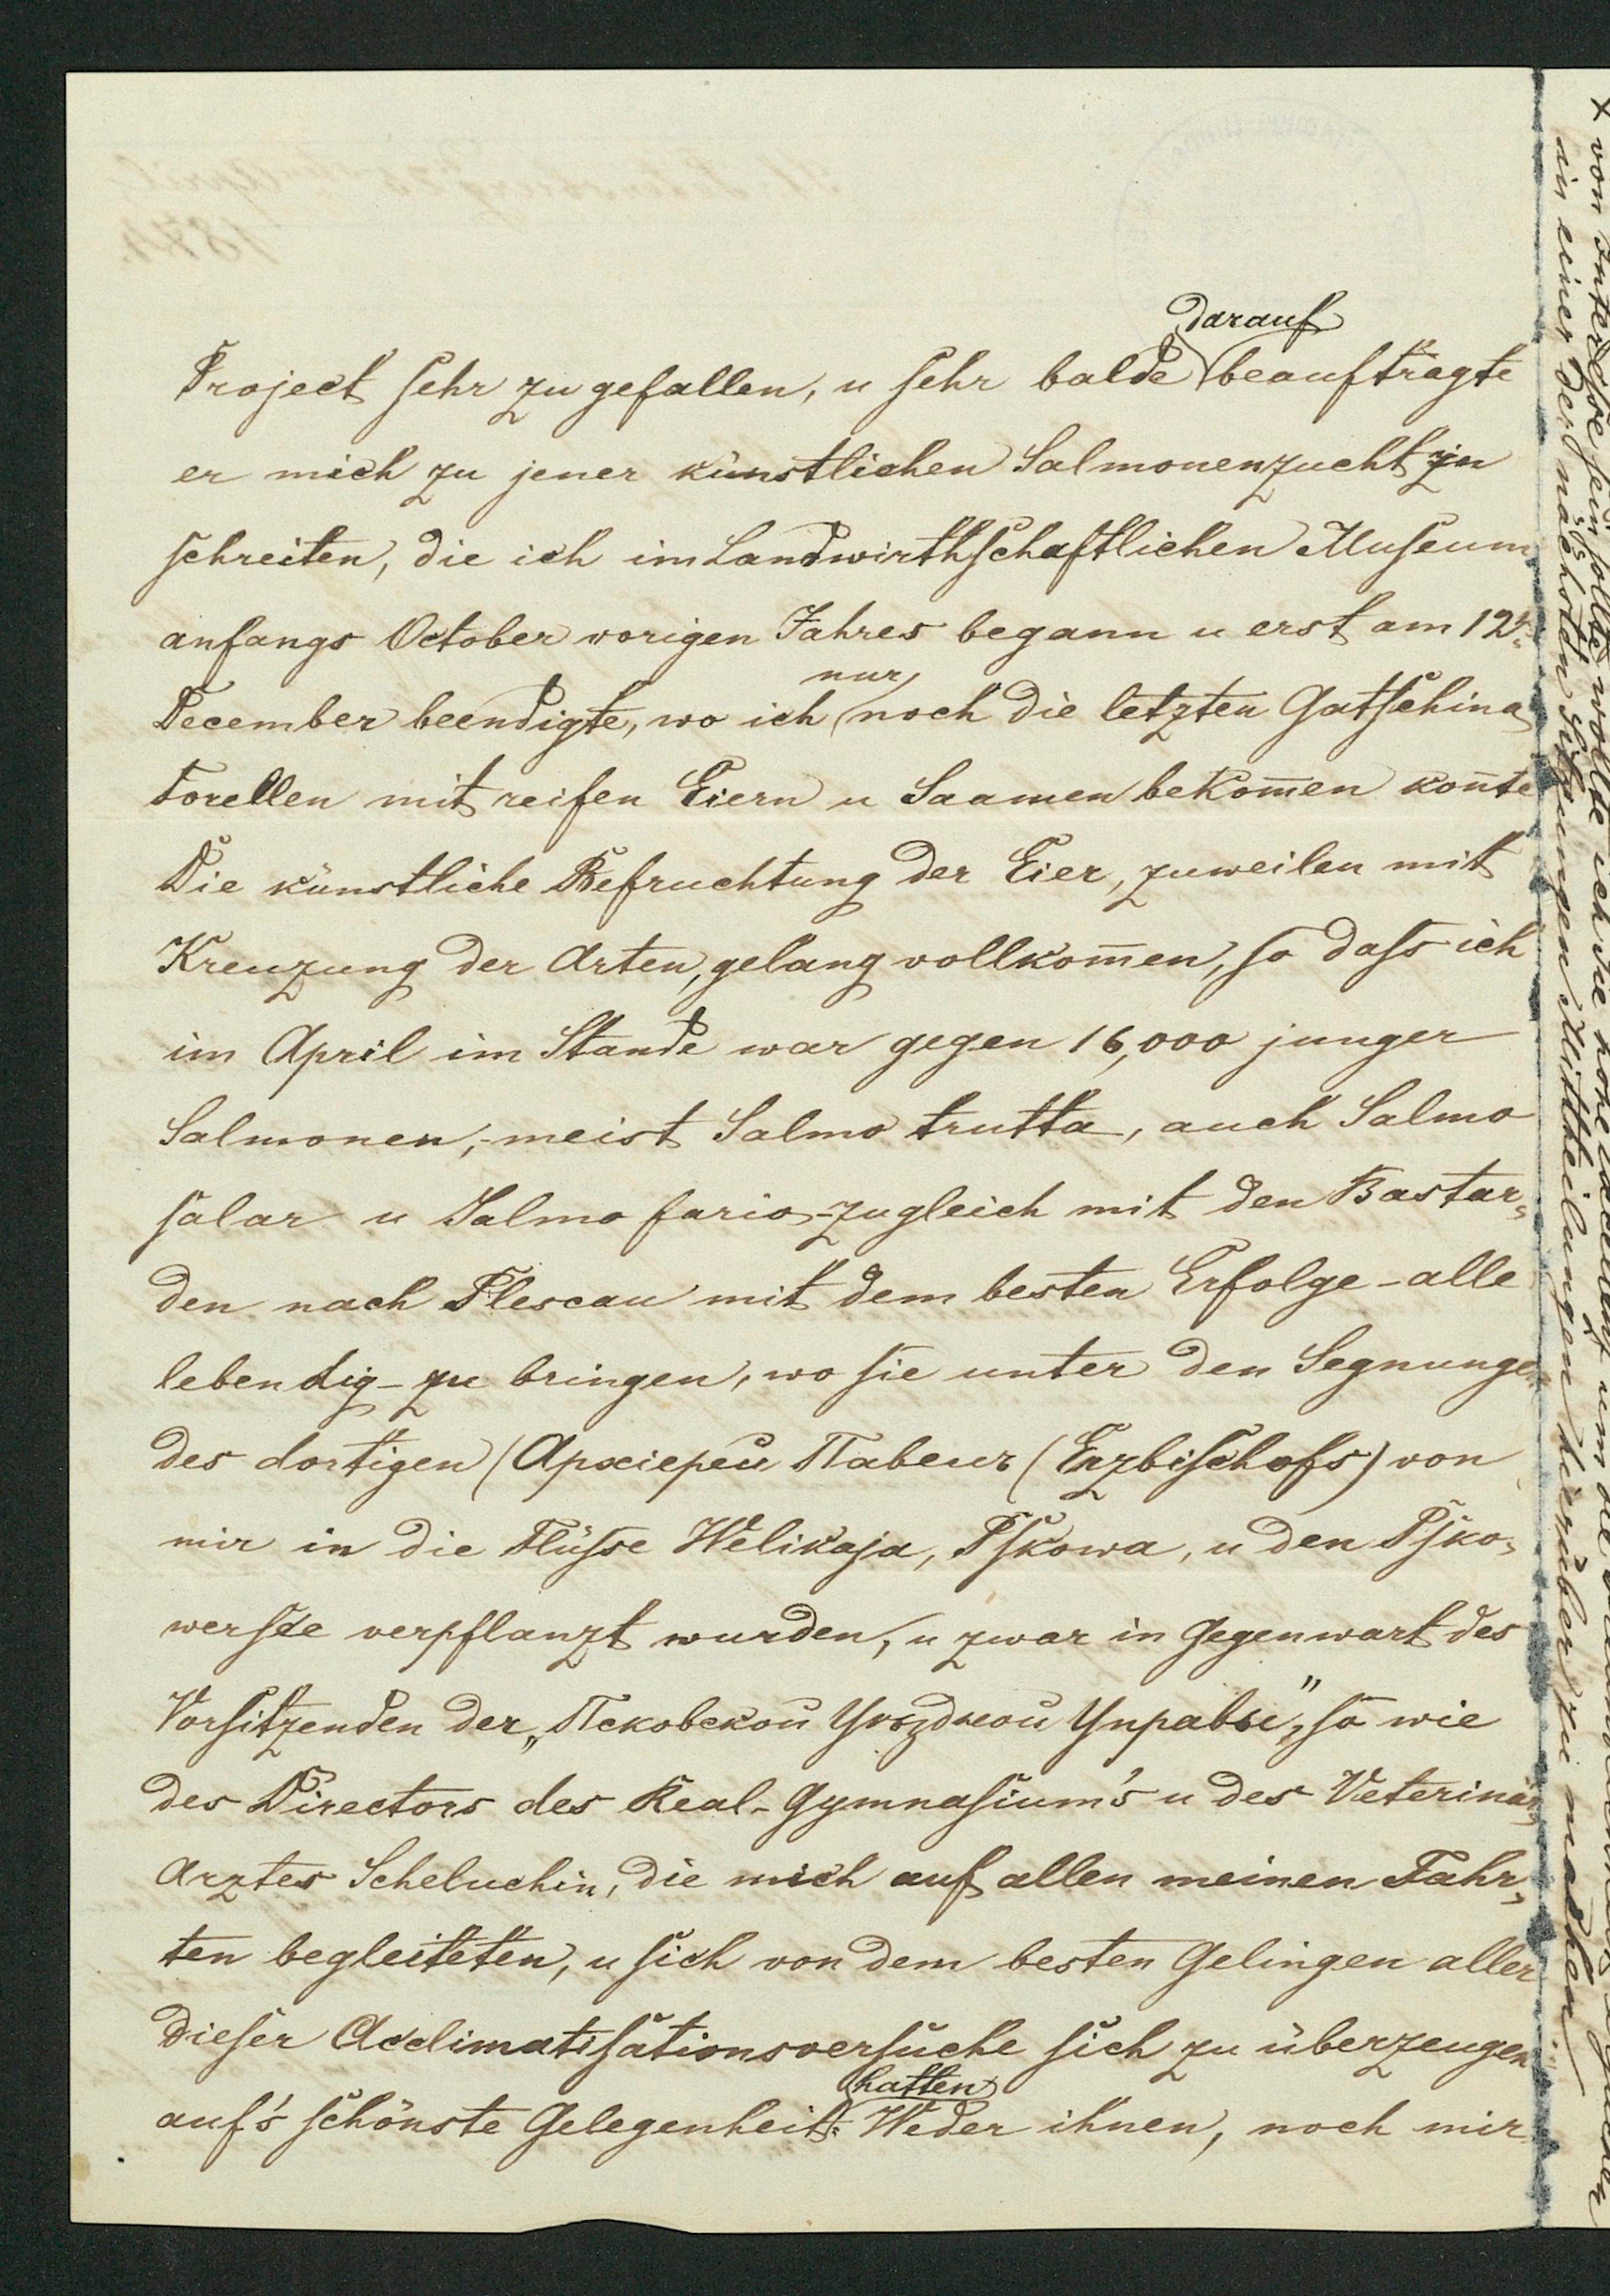 Project sehr zu gefallen, u sehr balde darauf beauftragte
er mich zu jener künstlichen Salmonenzucht zu
schreiten, die ich im Landwirthschaftlichen Museum
anfangs October vorigen Jahres begann u erst am 12t.
December beendigte, wo ich nur noch die letzten Gatschina
Forellen mit reifen Eiern u Saamen bekom̄en kon̄te
Die künstliche Befruchtung der Eier, zuweilen mit
Kreuzung der Arten, gelang vollkom̄en, so dass ich
im April im Stande war gegen 16,000 junger
Salmonen,- meist Salmo trutta, auch Salmo
salar u Salmo fario-zugleich mit den Bastar=
den nach Plescau mit dem besten Erfolge - alle
lebendig - zu bringen, wo sie unter den Segnungen
des dortigen (Архіерей Павелъ (Erzbischofs) von
mir in die Flüsse Welikaja, Pskowa, u den Psko=
wersee verpflanzt wurden, u zwar in Gegenwart des
Vorsitzenden der „Псковской Уѣздной Управѣ", so wie
des Directors des Real-Gymnasium's u des Veterinär
Arztes Scheluchin, die mich auf allen meinen Fahr=
ten begleiteten, u sich von dem besten Gelingen aller
dieser Acclimatisationsversuche sich zu überzeugen
auf's schönste Gelegenheit hatten. Weder ihnen, noch mir
x von Interesse sein sollte wollte ich die hohe
in einer der nächsten Sitzungen Mittheilungen hierüber zu machen